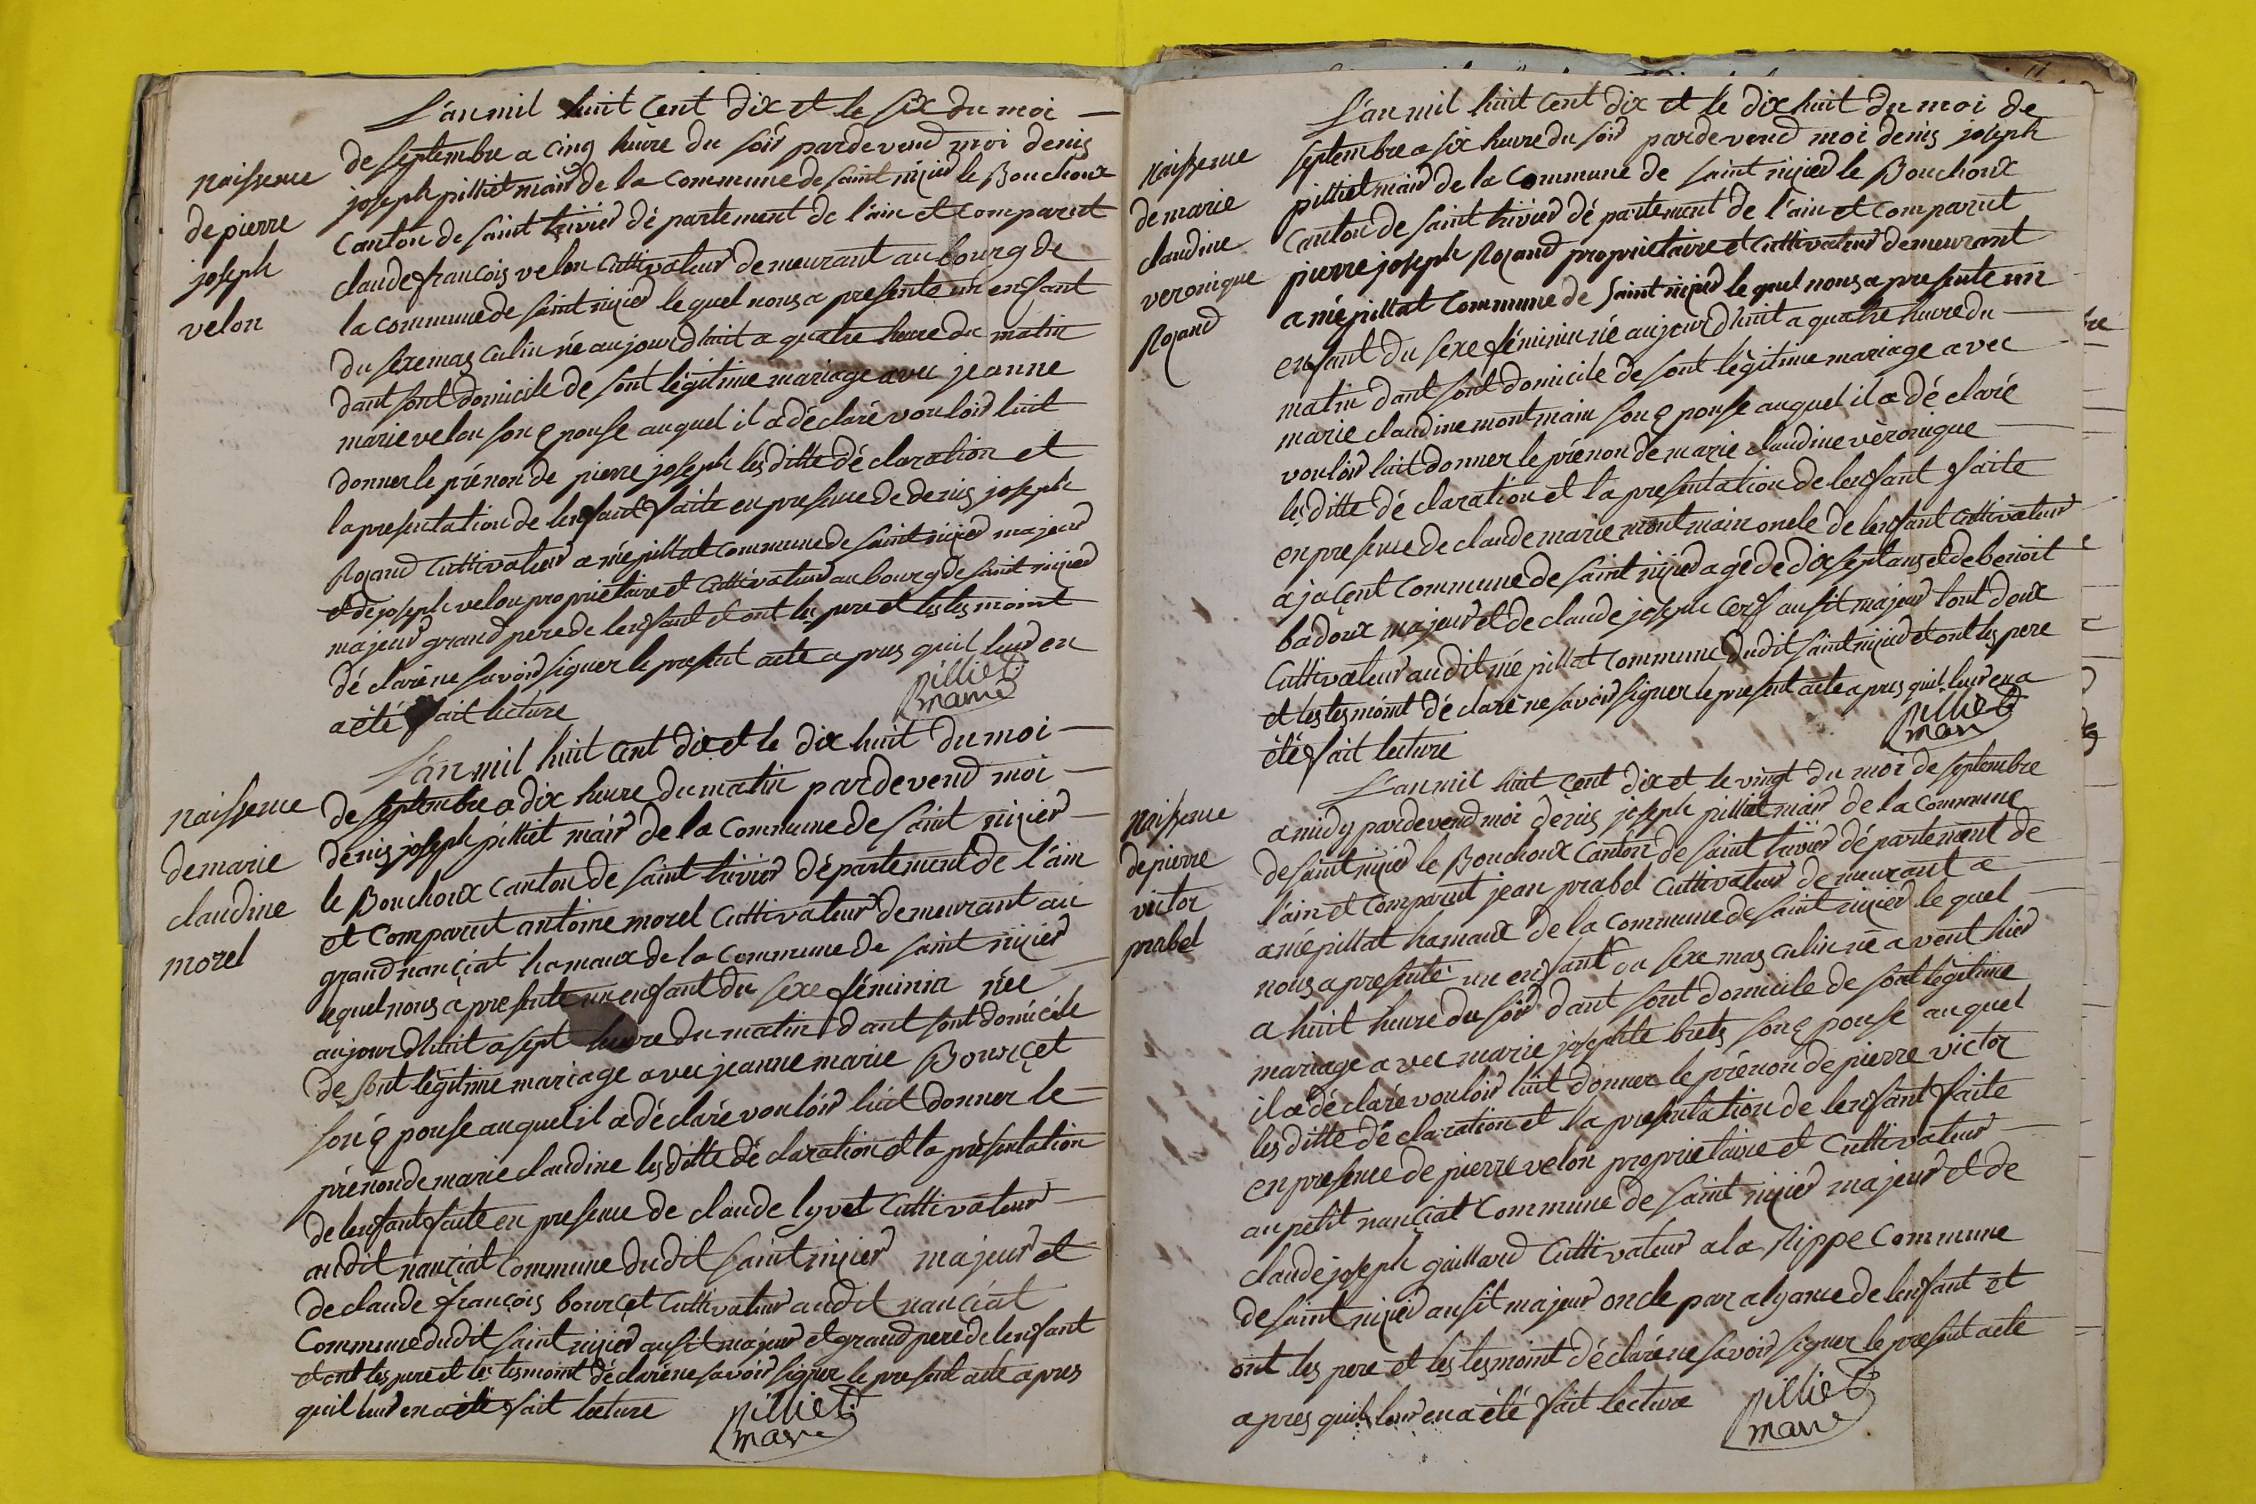 L'an mil huit Cent dix et le six du moi
naissence
de pierre
joseph
velon
de septembre a cinq heure du soir pardevend moi denis
joseph pilliet mair de la Commune de saint nizier le Bouchoux
Canton de saint trivier département de l'ain et Comparut
claude françois velon Cultivateur demeurant au bourg de
la Commune de saint nizier le quel nous a presente un enfant
du sexe mas culin né aujourdhuit a quatre heure du matin
dant sont domicile de sont légitime mariage avec jeanne
marie velon son épouse auquel il a déclaré vouloir luit
donner le prénon de pierre joseph les ditte déclaration et
la presentation de lenfant faite en presence de denis joseph
Rozand Cultivateur a mépillat Commune de saint nizier majeur
et de joseph velon propriétaire et Cultivateur au bourg de saint nizier
majeur grand pere de lenfant et ont les pere et les tesmoint
déclaré ne savoir signer le present acte apres quil leur en
a été fait lecture
pilliet
maire
L'an mil huit Cent dix et le dix huit du moi
naissence
de marie
claudine
morel
de septembre a dix heure du matin pardevend moi
denis joseph pilliet mair de la Commune de saint nizier
le Bouchoux Canton de saint trivier département de l'ain
et Comparut antoine morel Cultivateur demeurant au
grand nançiat hamaux de la Commune de saint nizier
le quel nous a presente un enfant du sexe féminin née
aujourdhuit a sept heure du matin dant sont domicile
de sont légitime mariage avec jeanne marie Bourçet
son épouse auquel il a déclaré vouloir luit donner le
prénon de marie claudine les ditte déclaration et la présentation
de lenfant faite en presence de claude lyvet Cultivateur
audit nançiat Commune dudit saint nizier majeur et
de claude françois bourçet Cultivateur audit nançiat
Commune dudit saint nizier ausit majeur et grand pere de lenfant
et ont les pere et les tesmoint déclaré ne savoir signer le present acte apres
quil leur en a été fait lecture
pilliet
maire
L'an mil huit Cent dix et le dix huit du moi de
naissence
de marie
claudine
veronique
Rozand
septembre a six heure du soir pardevend moi denis joseph
pilliet mair de la Commune de saint nizier le Bouchoux
Canton de saint trivier département de l'ain et Comparut
pierre joseph Rozand propriétaire et Cultivateur demeurant
a mépillat Commune de saint nizier le quel nous a presente un
enfant du sexe féminin né aujourdhuit a quatre heure du
matin dant sont domicile de sont légitime mariage avec
marie claudine montmain son épouse auquel il a déclaré
vouloir luit donner le prénon de marie claudine vèronique
les ditte déclaration et la presentation de lenfant faite
en presence de claude marie montmain oncle de lenfant Cultivateur
a jaçent Commune de saint nizier agé de dix sept ans et de benoit
badoux majeur et de claude joseph Cerf ausit majeur tout doux
Cultivateur audit mépillat Commune dudit saint nizier et ont les pere
et les tesmoint déclaré ne savoir signer le present acte apres quil leur en a
été fait lecture
pilliet
maire
L'an mil huit Cent dix et le vingt du moi de septembre
naissence
de pierre
victor
prabel
a midy pardevend moi dènis joseph pilliet mair de la Commune
de saint nizier le Bouchoux Canton de saint trivier département de
l'ain et Comparut jean prabel Cultivateur demeurant a
a mépillat hamaux de la Commune de saint nizier le quel
nous a presenté un enfant du sexe mas culin né avent hier
a huit heure du soir dant sont domicile de sont légitime
mariage avec marie josephte brets son épouse auquel
il a déclaré vouloir luit donner le prénon de pierre victor
les ditte déclaration et la presentation de lenfant faite
en presence de pierre velon proprietaire et Cultivateur
au petit nançiat Commune de saint nizier majeur et de
claude joseph guillard Cultivateur a la Rippe Commune
de saint nizier ausit majeur oncle par alyance de lenfant et
ont les pere et les tesmoint déclaré ne savoir signer le present acte
apres quil leur en a été fait lecture
pilliet
maire